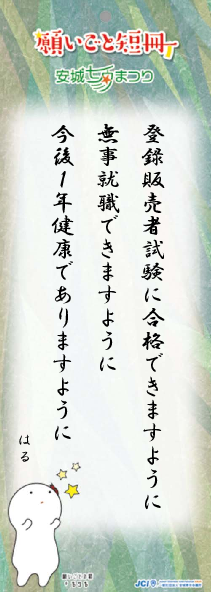 願いごと短冊
安城七夕まつり
登録販売者試験に合格できますように
無事就職できますように
今後1年健康でありますように
はる
JCI